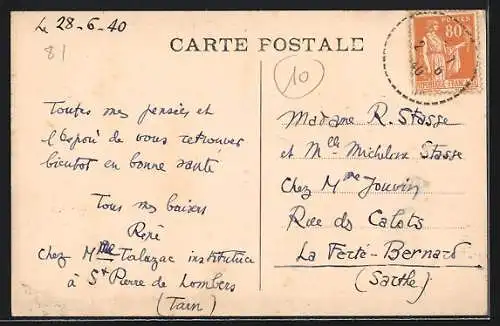 Le 28-6-40
81
CARTE POSTALE
10
POSTES
80c
REPUBLIQUE FRANÇAISE
Toutes mes pensées et
l'Espoir de vous retrouver
bientot en bonne santé
Tous mes baisers
René
Chez Mme Talazac institutrice
à St Pierre de Lombers
(Tarn)
Madame R. Stasse
et Mlle Micheline Stasse
Chez Mme Jouvin
Rue des Calots
La Ferté-Bernard
(Sarthe)